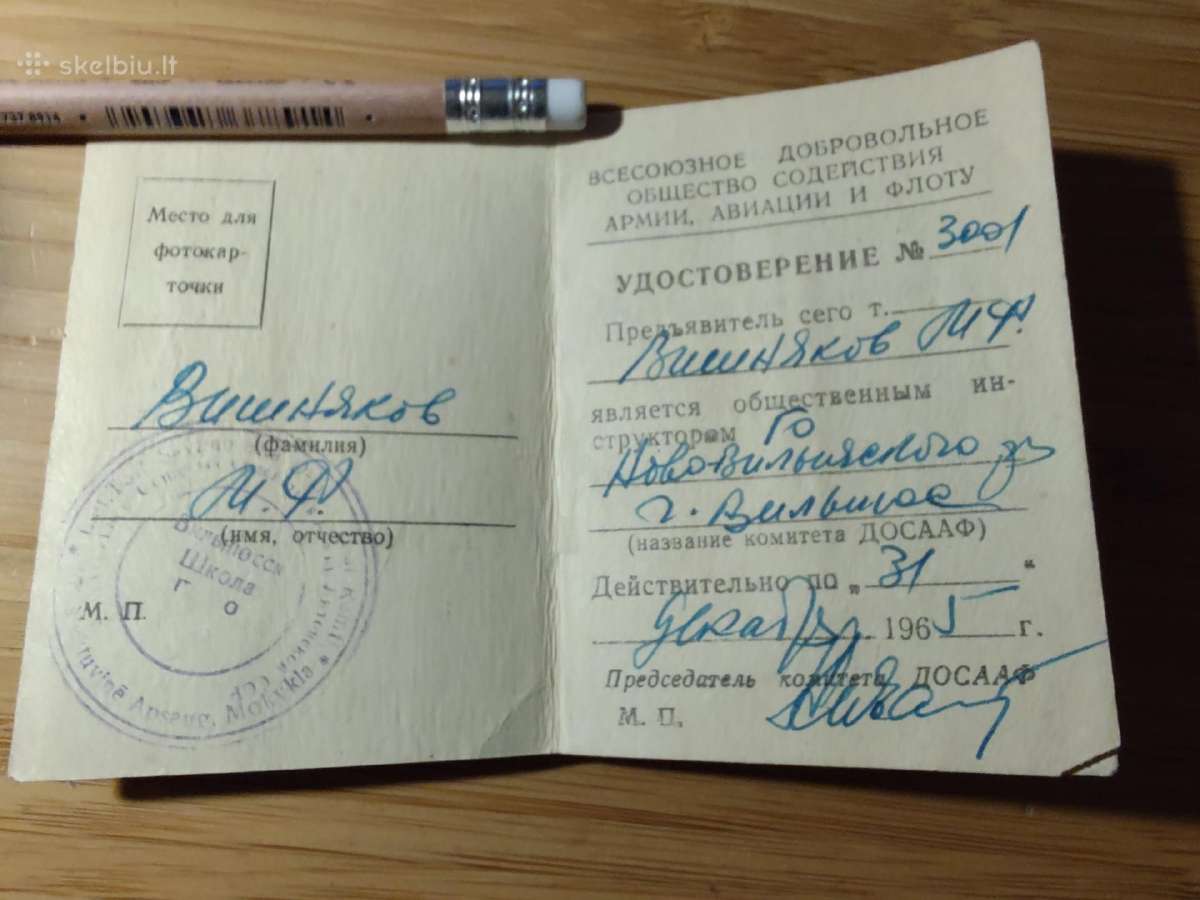 skelbiu.lt
737 8914
Место для
фотокар-
точки
Вишняков
(фамилия)
М. Ф.
(имя, отчество)
М. П.
Школа
Г О
Mokykla
ВСЕСОЮЗНОЕ ДОБРОВОЛЬНОЕ
ОБЩЕСТВО СОДЕЙСТВИЯ
АРМИИ, АВИАЦИИ И ФЛОТУ
УДОСТОВЕРЕНИЕ № 3001
Предъявитель сего т.
Вишняков М.Ф.
является общественным ин-
структором ГО
Нововильняского
г. Вильнюс
(название комитета ДОСААФ)
Действительно по „ 31 “
декабря 1965 г.
Председатель комитета ДОСААФ
М. П.